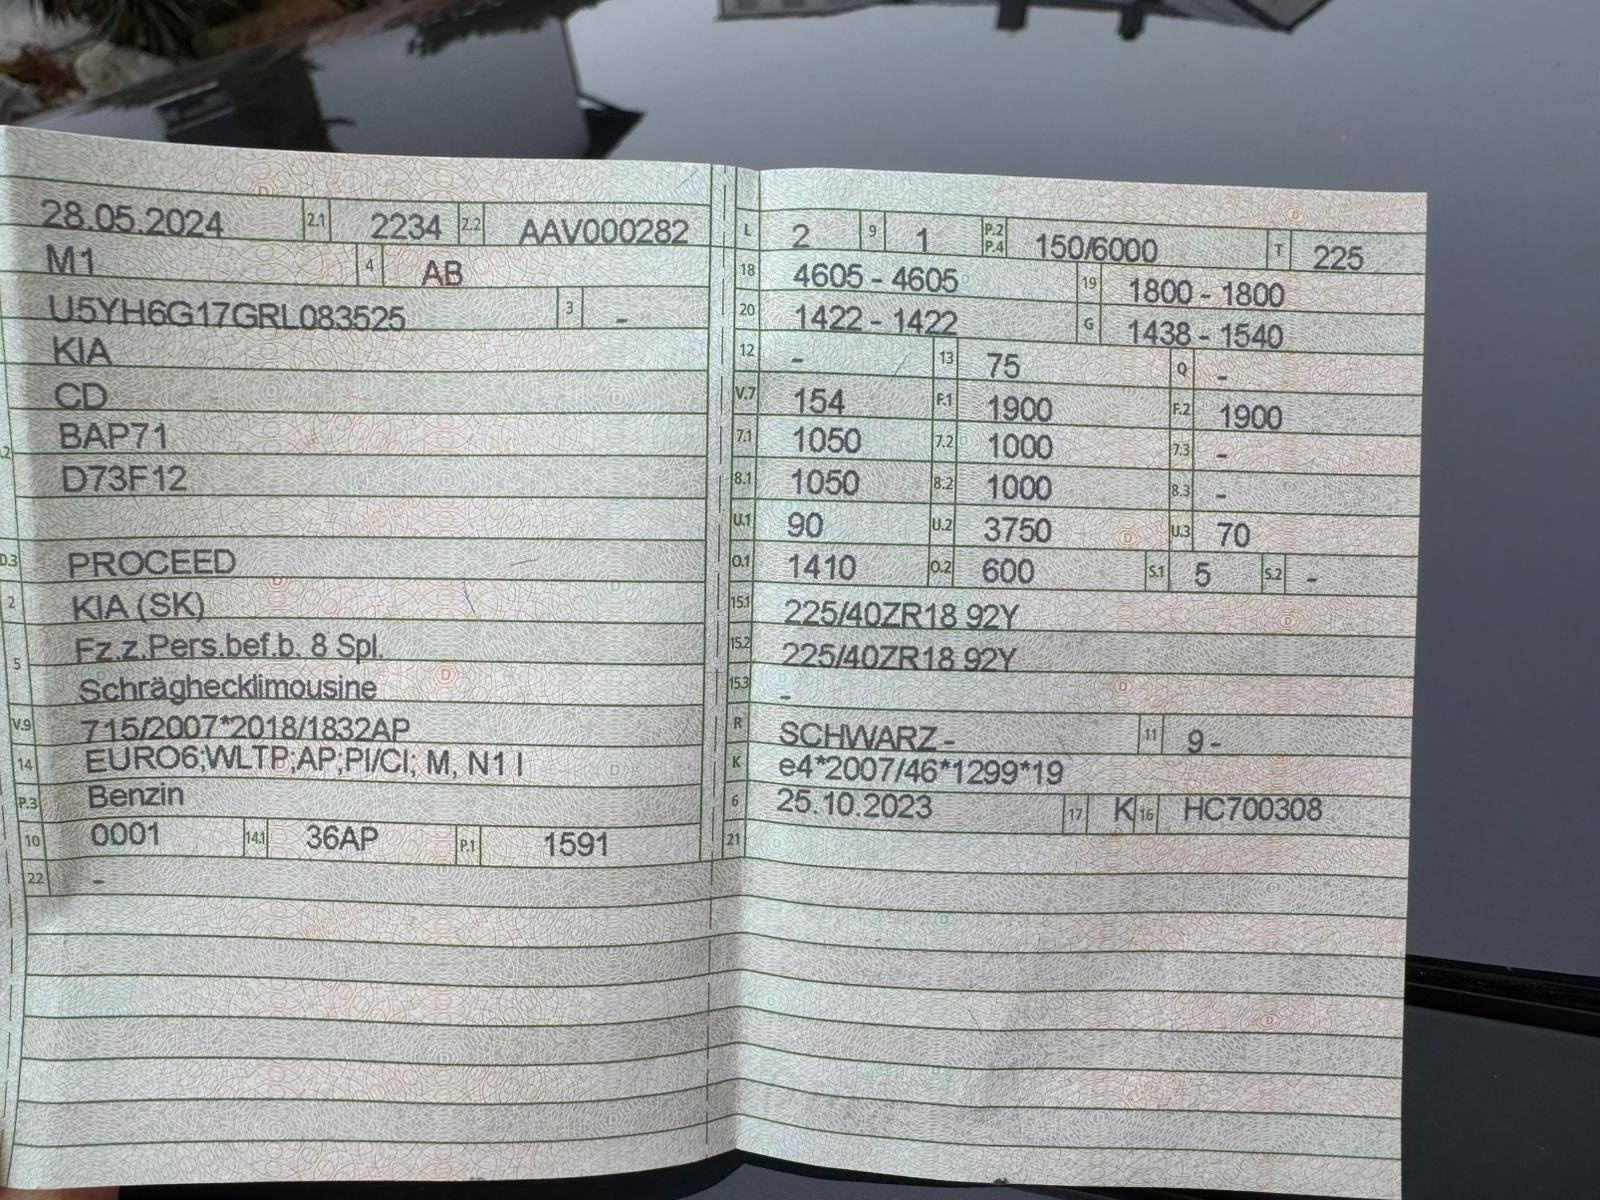 28.05.2024 2.1 2234 2.2 AAV000282
M1 4 AB
U5YH6G17GRL083525 3 -
KIA
CD
.2 BAP71
D73F12
D.3 PROCEED
2 KIA (SK)
5 Fz.z.Pers.bef.b. 8 Spl.
Schräghecklimousine
V.9 715/2007*2018/1832AP
14 EURO6;WLTP;AP;PI/CI; M, N1 I
P.3 Benzin
10 0001 14.1 36AP P.1 1591
22 -
L 2 9 1 P.2 P.4 150/6000 T 225
18 4605 - 4605 19 1800 - 1800
20 1422 - 1422 G 1438 - 1540
12 - 13 75 Q -
V.7 154 F.1 1900 F.2 1900
7.1 1050 7.2 1000 7.3 -
8.1 1050 8.2 1000 8.3 -
U.1 90 U.2 3750 U.3 70
O.1 1410 O.2 600 S.1 5 S.2 -
15.1 225/40ZR18 92Y
15.2 225/40ZR18 92Y
15.3 -
R SCHWARZ - 11 9 -
K e4*2007/46*1299*19
6 25.10.2023 17 K 16 HC700308
21